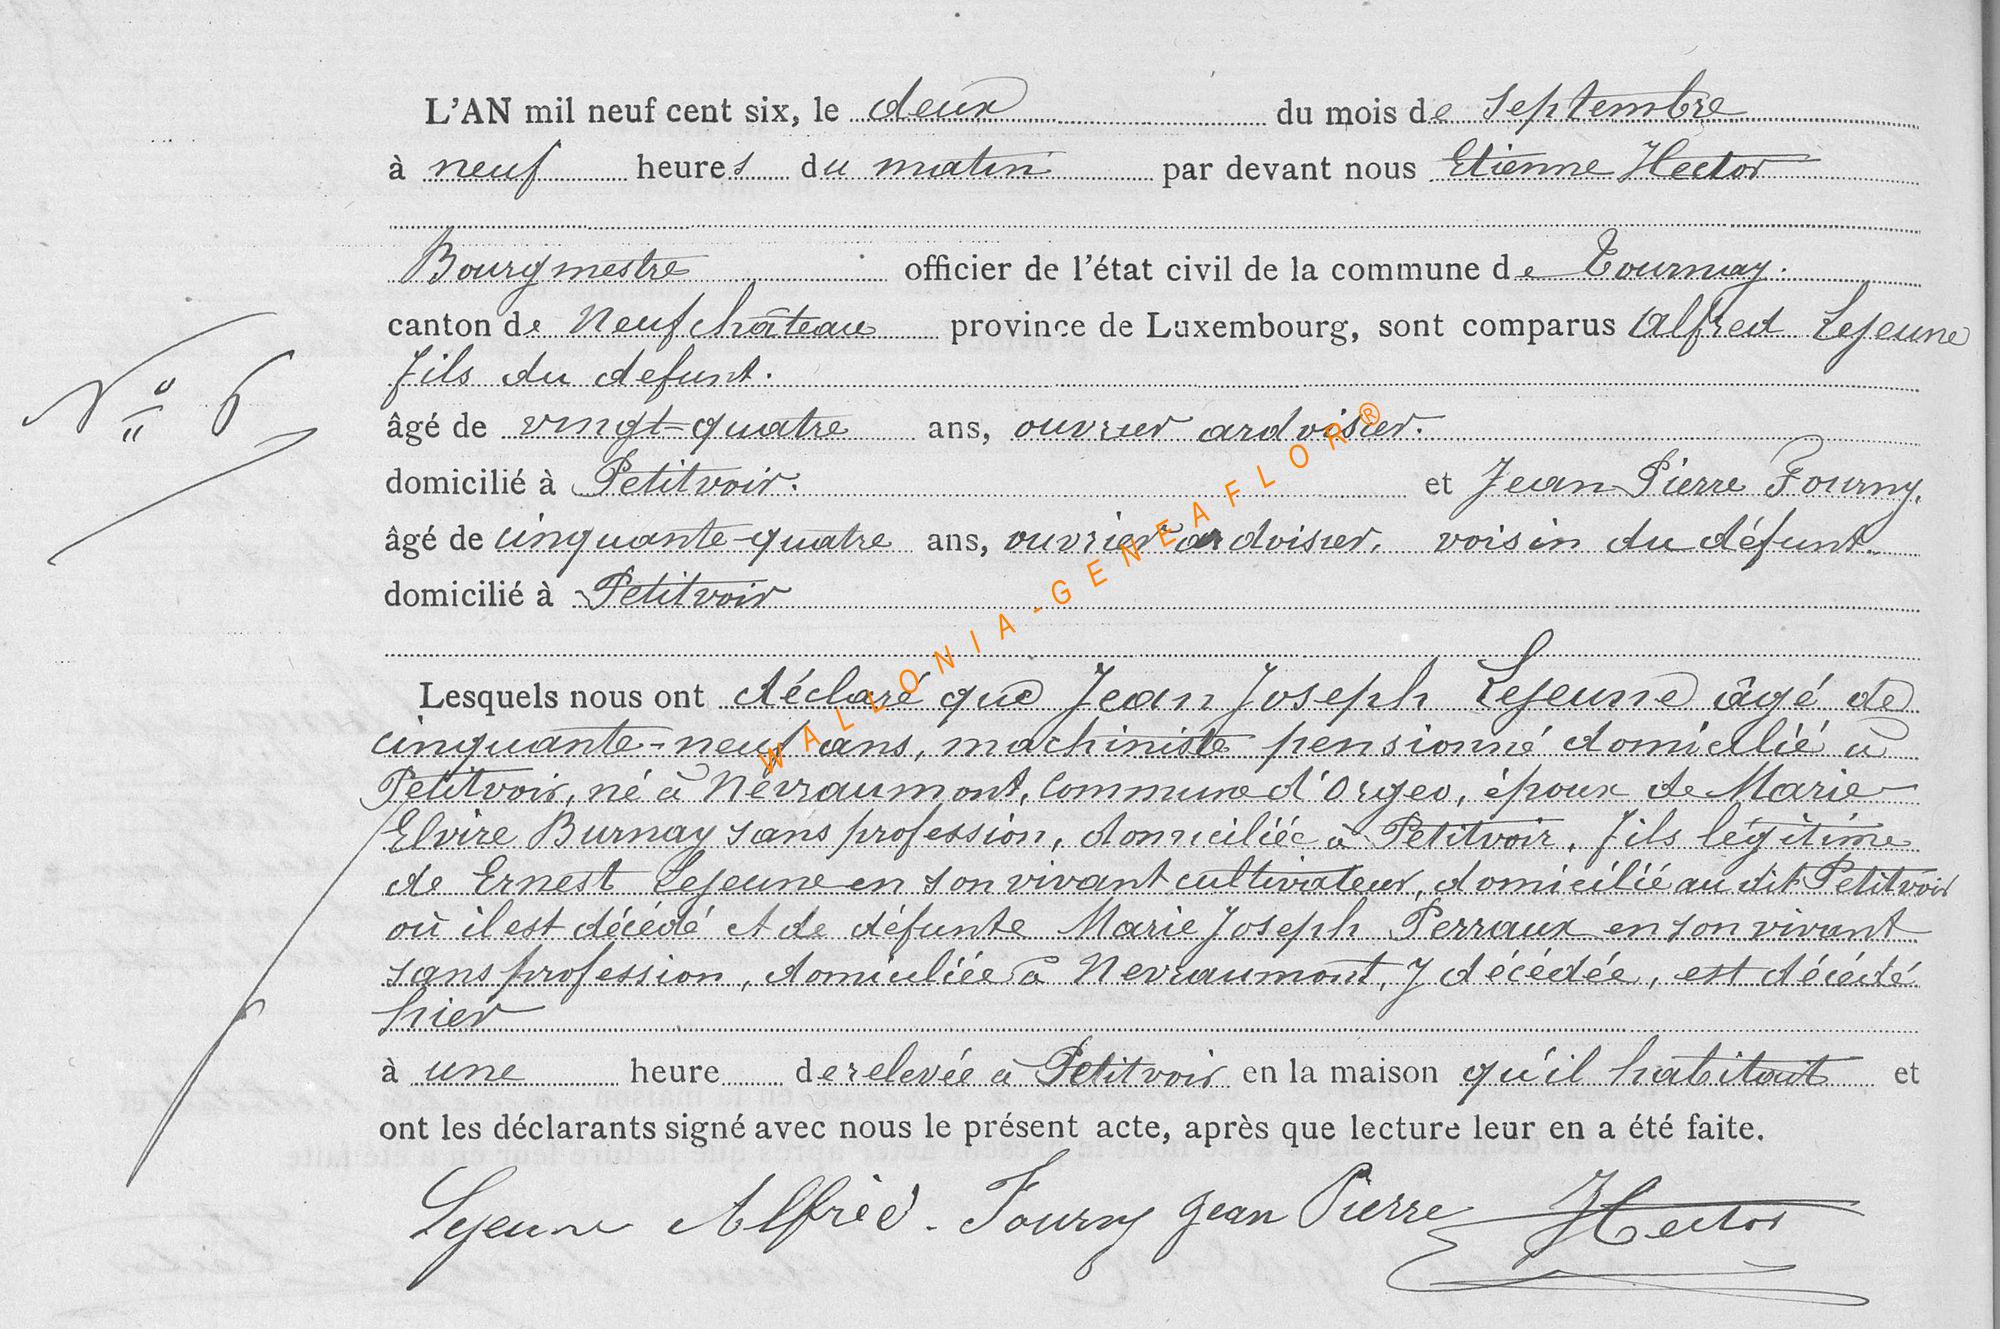 L'AN mil neuf cent six, le deux du mois de septembre
à neuf heures du matin par devant nous Etienne Hector
Bourgmestre officier de l'état civil de la commune de Tournay.
canton de Neufchâteau province de Luxembourg, sont comparus Alfred Lejeune
fils du defunt.
N° 6
âgé de vingt-quatre ans, ouvrier ardoisier.
domicilié à Petitvoir. et Jean Pierre Fourny,
âgé de cinquante-quatre ans, ouvrier ardoisier, voisin du défunt.
domicilié à Petitvoir
WALLONIA-GENEAFLOR®
Lesquels nous ont déclaré que Jean Joseph Lejeune âgé de
cinquante-neuf ans, machiniste pensionné domicilié à
Petitvoir, né à Névraumont, commune d'Orgeo, époux de Marie
Elvire Burnay sans profession, domiciliée à Petitvoir, fils légitime
de Ernest Lejeune en son vivant cultivateur, domicilié au dit Petitvoir
où il est décédé et de défunte Marie Joseph Perraux en son vivant
sans profession, domiciliée à Nevraumont, y décédée, est décédé
hier
à une heure de relevée à Petitvoir en la maison qu'il habitait et
ont les déclarants signé avec nous le présent acte, après que lecture leur en a été faite.
Lejeune Alfred. Fourny Jean Pierre Hector